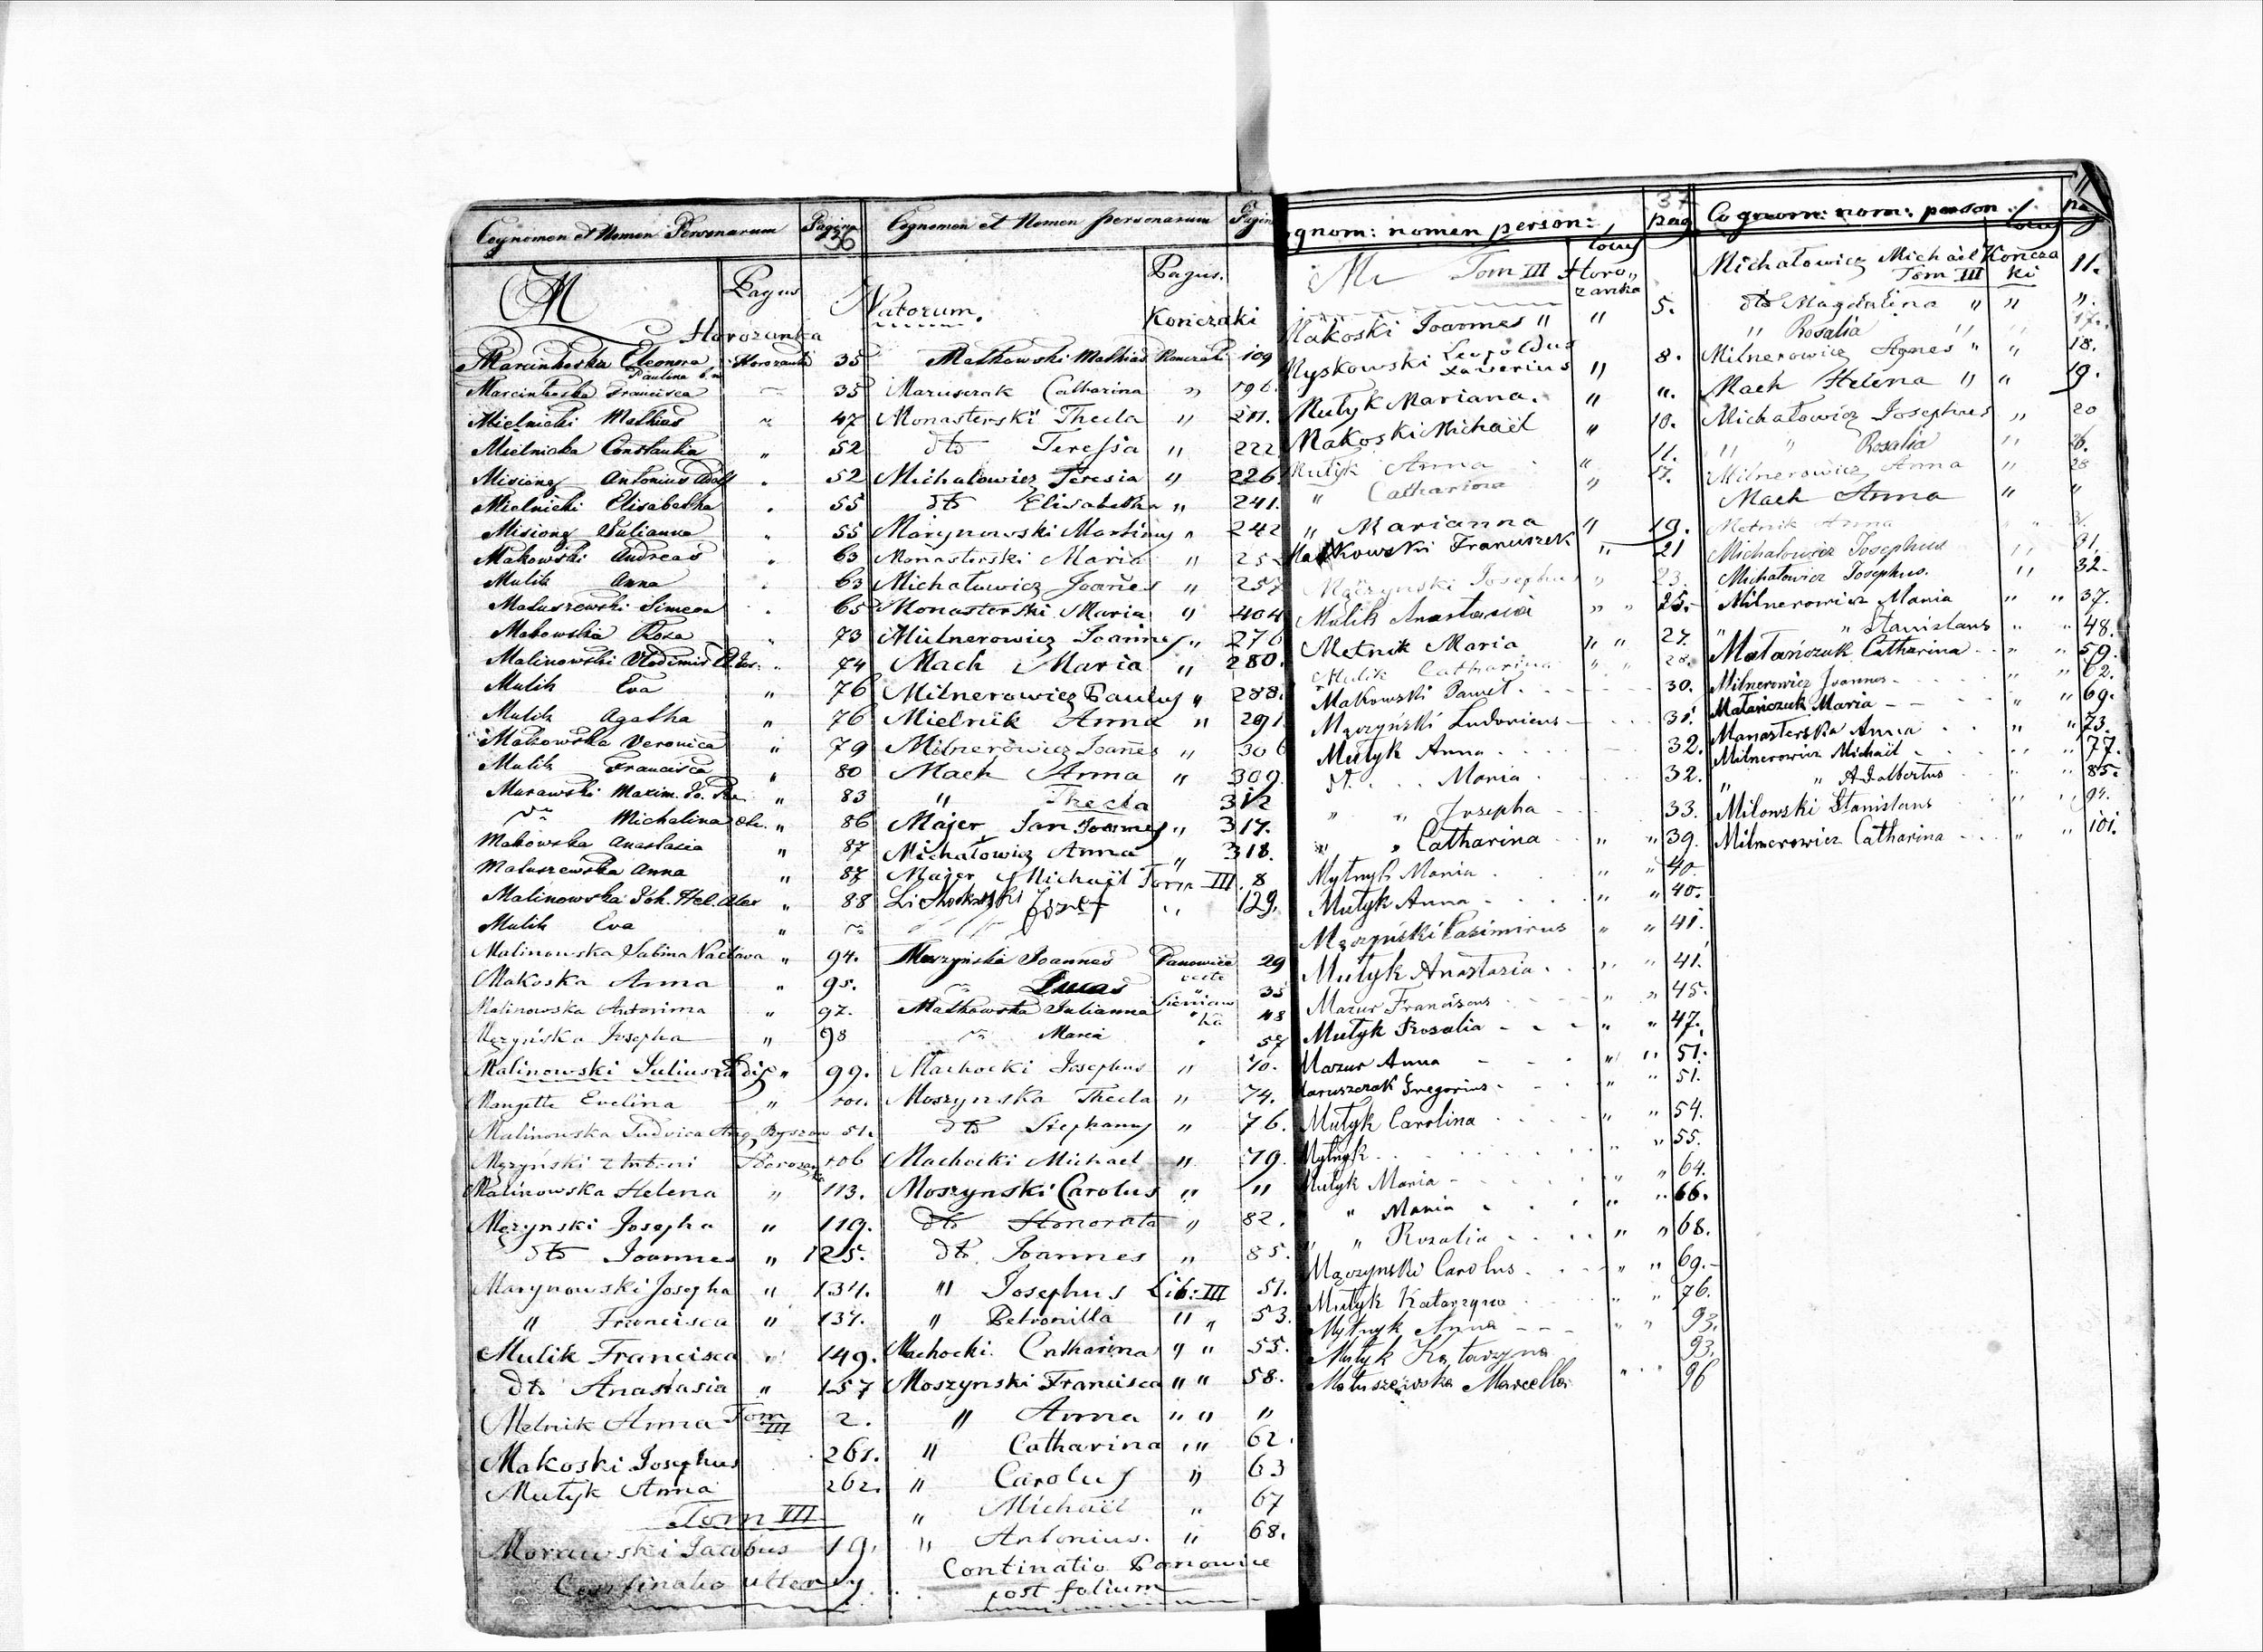 Cognomen et Nomen Personarum Pagina 36
M Pagus
Horozanka
Marcinkoska Eleonora Horozanka 35
Paulina b. n.
Marcinkoska Francisca 35
Mielnicki Mathias 47
Mielnicka Constantia " 52
Misiong Antonius Adolf " 52
Mielnicki Elisabetha " 55
Misiong Julianna " 55
Makowski Andreas " 63
Mulik Anna " 63
Matuszewski Simeon " 65
Makowska Rosa " 73
Malinowski Vlodimir " 74
Mulik Eva " 76
Mulik Agatha " 76
Makowska Veronica " 79
Mulik Francisca " 80
Murawski Maxim. Jo. " 83
Michalina " 86
Makowska Anastasia " 87
Matuszewska Anna " 87
Malinowska Joh. Hel. Alex " 88
Mulik Eva "
Malinowska Sabina " 94.
Makoska Anna " 95.
Malinowska Antonina " 97.
Męzyńska Josepha " 98
Malinowski Juliusz " 99.
Mangette Evelina "
Malinowska Ludvica 51.
Męzyński Antoni Horozanka 106
Malinowska Helena " 113.
Męzynski Josepha " 119.
dto Joannes " 125.
Marynowski Josepha " 134.
" Francisca " 137.
Mulik Francisca " 149.
dto Anastasia " 157
Melnik Anna Tom III 2.
Makoski Josephus 261.
Mułyk Anna 262.
Tom VII
Morawski Jacobus 19.
Continatio
Cognomen et Nomen personarum Pagina
Natorum. Pagus.
Konczaki
Malkowski Mathias Konczaki 109
Maruszczak Catharina " 196.
Monasterski Thecla " 211.
dto Teressia " 222
Michałowicz Teresia " 226
dto Elisabetha " 241.
Marynowski Martinus " 242
Monasterski Maria "
Michałowicz Joannes " 257
Monasterski Maria " 404
Milnerowicz Joannes " 276
Mach Maria " 280.
Milnerowicz Paulus " 288.
Mielnik Anna " 291
Milnerowicz Joannes " 306
Mach Anna " 309.
" Thecla 312
Majer Jan Joannes " 317.
Michałowicz Anna " 318.
Majer Michaël Tom III. 8
Józef " 129.
Murzyński Joannes Panowice 29
Lucas 35
Malkowska Julianna 48
Maria 57
Machocki Josephus " 70.
Moszynska Thecla " 74.
dto Stephanus " 76.
Machocki Michael " 79.
Moszynski Carolus " "
dto Honorata " 82.
dto Joannes " 85.
" Josephus Lib: III 51.
" Petronilla " " 53.
Machocki Catharina " " 55.
Moszynski Francisca " " 58.
" Anna " " "
" Catharina " " 62.
" Carolus " 63
" Michaël " 67
" Antonius. " 68.
Continatio Panowice
post folium
gnom: nomen person: locus 37 pag
M Tom III Horozanka
Makoski Joannes " " 5.
Myskowski Leopoldus Xawerius " 8.
Mułyk Mariana. " ".
Makoski Michaël " 10.
Mułyk Anna " 11.
" Catharina " 17.
" Marianna " 19.
Malkowski Franciszek " 21
Męczynski Josephus " 23.
Mulik Anastasia " " 25.
Metnik Maria " " 27.
Mulik Catharina " " 28.
Makowski Paweł 30.
Męczyński Ludovicus 31.
Mułyk Anna 32.
dt. Maria 32.
" " Josepha 33.
" " Catharina " " 39.
Mytnyk Maria " " 40.
Mułyk Anna " " 40.
Męczyński Casimirus " " 41.
Mułyk Anastazia " " 41.
Mazur Franciscus " " 45.
Mułyk Rosalia " " 47.
Mazur Anna " " 51.
Maruszczak Gregorius " " 51.
Mułyk Carolina " " 54.
Mytnyk " 55.
Mułyk Maria " " 64.
" Maria " " 66.
" " Rozalia " " 68.
Męczynski Carolus " " 69.
Mułyk Katarzyna " " 76.
Mytnyk Anna " " 93.
Mułyk Katarzyna 93.
Matuszewska Marcella " " 96
Cognom: nom: person: locus pag
Michałowicz Michaël Kończaki 11.
Tom III
dto Magdalena " " ".
" Rosalia " " 17.
Milnerowicz Agnes " " 18.
Mach Helena " " 19.
Michałowicz Josephus " 20
" " Rosalia " 26.
Milnerowicz Anna " 28
Mach Anna " "
Metnik Anna
Michałowicz Josephus " 31.
Michałowicz Josephus. " 32.
Milnerowicz Maria " " 37.
" " Stanislaus " " 48.
Matańczuk Catharina " " 59.
Milnerowicz Joannes " " 62.
Matańczuk Maria " " 69.
Manasterska Anna " " 73.
Milnerowicz Michaël " " 77.
" " Adalbertus " " 85.
Milowski Stanislaus " " 94.
Milnerowicz Catharina " " 101.